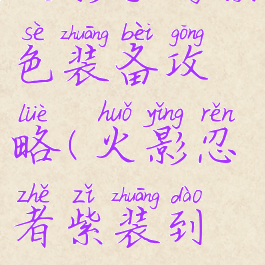 sè zhuāng bèi gōng
色装备攻
lüè huǒ yǐng rěn
略(火影忍
zhě zǐ zhuāng dào
者紫装到